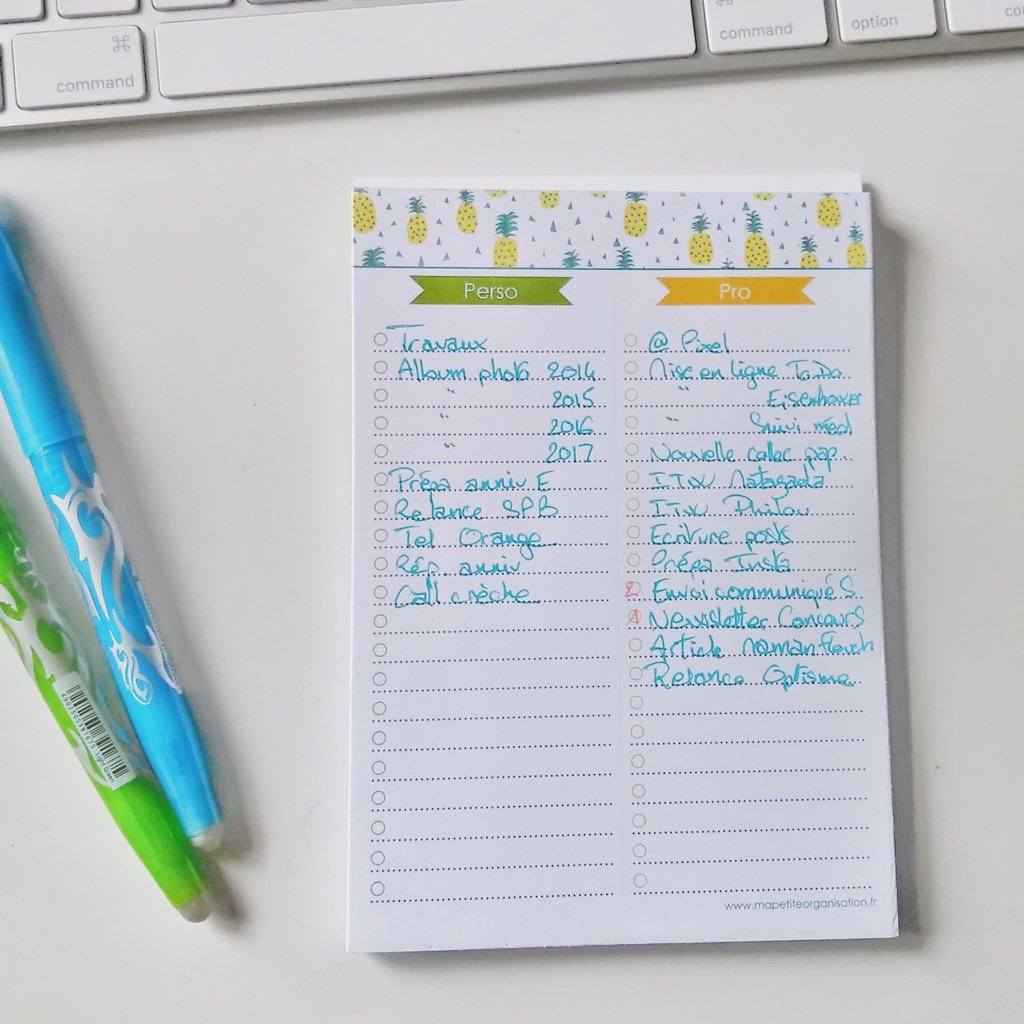 ⌘
command
⌘
command
option
Perso
Travaux
Album photo 2014
" 2015
" 2016
" 2017
Prépa anniv E
Relance SPB
Tel Orange
Rép. anniv
Call crèche
Pro
@ Pixel
Mise en ligne To Do
" Eisenhower
" Suivi méd
Nouvelle collec pap.
ITW
ITW
Ecriture posts
Prépa Insta
2 Envoi communiqué S.
1 Newsletter Concours
Article
Relance
www.mapetiteorganisation.fr
4902505391675 Light Green